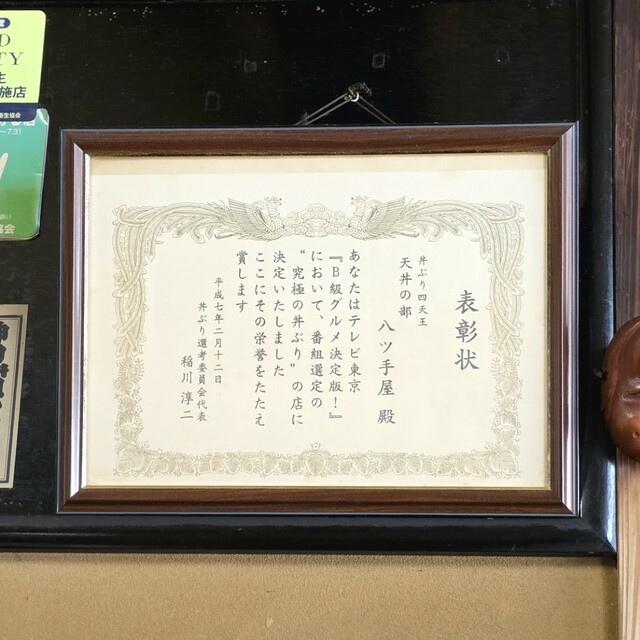 表彰状
丼ぶり四天王
天丼の部
八ツ手屋 殿
あなたはテレビ東京
『B級グルメ決定版!』
において、番組選定の
“究極の丼ぶり”の店に
決定いたしました
ここにその栄誉をたたえ
賞します
平成七年二月十二日
丼ぶり選考委員会代表
稲川 淳二
D
TY
生
施店
生協会
7.31
協会